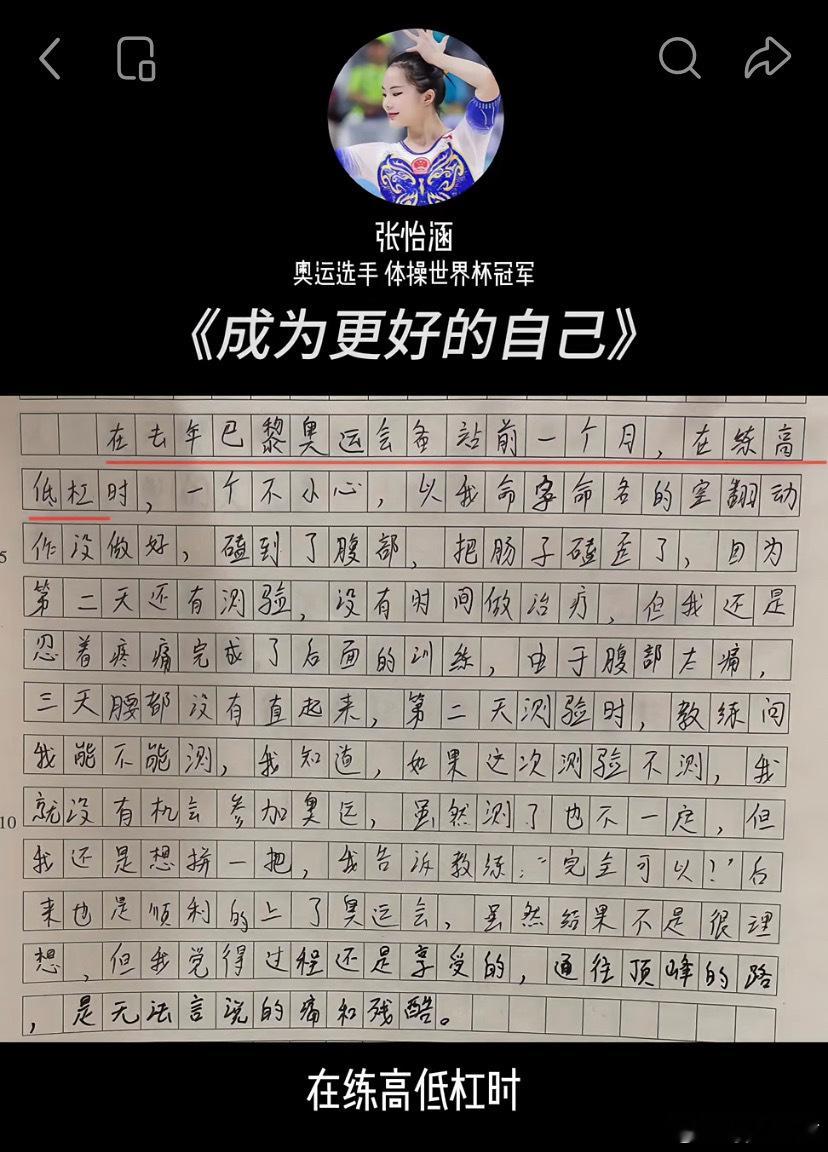 张怡涵
奥运选手 体操世界杯冠军
《成为更好的自己》
在去年巴黎奥运会备站前一个月，在练高
低杠时，一个不小心，以我命字命名的空翻动
5
作没做好，磕到了腹部，把肠子磕歪了，因为
第二天还有测验，没有时间做治疗，但我还是
忍着疼痛完成了后面的训练，由于腹部太痛，
三天腰都没有直起来，第二天测验时，教练问
我能不能测，我知道，如果这次测验不测，我
10
就没有机会参加奥运，虽然测了也不一定，但
我还是想拼一把，我告诉教练：“完全可以！”后
来也是顺利的上了奥运会，虽然结果不是很理
想，但我觉得过程还是享受的，通往顶峰的路
，是无法言说的痛和残酷。
在练高低杠时